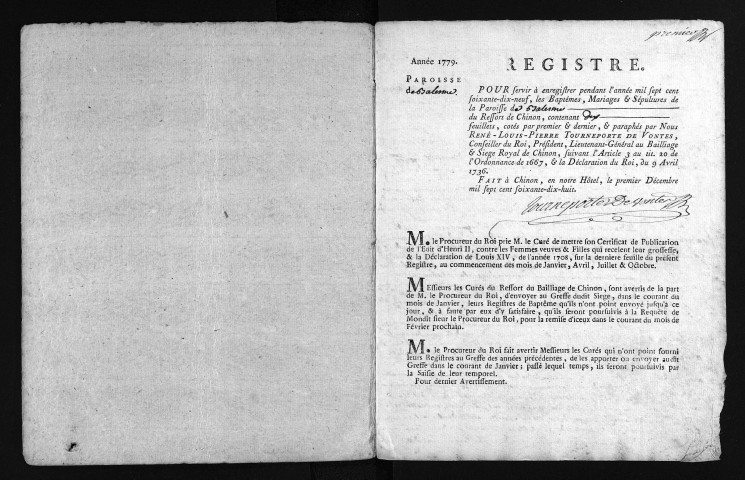 premier
Année 1779.
REGISTRE.
PAROISSE
de Balesme
POUR servir à enregistrer pendant l'année mil sept cent
soixante-dix-neuf, les Baptêmes, Mariages & Sépultures de
la Paroisse de Balesme
du Ressort de Chinon, contenant dix
feuillets, cotés par premier & dernier, & paraphés par Nous
RENÉ-LOUIS-PIERRE TOURNEPORTE DE VONTES,
Conseiller du Roi, Président, Lieutenant-Général au Bailliage
& Siege Royal de Chinon, suivant l'Article 3 au tit. 20 de
l'Ordonnance de 1667, & la Déclaration du Roi, du 9 Avril
1736.
FAIT à Chinon, en notre Hôtel, le premier Décembre
mil sept cent soixante-dix-huit.
Tourneporte De Vontes
M. le Procureur du Roi prie M. le Curé de mettre son Certificat de Publication
de l'Edit d'Henri II, contre les Femmes veuves & Filles qui recelent leur grossesse,
& la Déclaration de Louis XIV, de l'année 1708, sur la derniere feuille du présent
Registre, au commencement des mois de Janvier, Avril, Juillet & Octobre.
MEssieurs les Curés du Ressort du Bailliage de Chinon, sont avertis de la part
de M. le Procureur du Roi, d'envoyer au Greffe dudit Siege, dans le courant du
mois de Janvier, leurs Registres de Baptême qu'ils n'ont point envoyé jusqu'à ce
jour, & à faute par eux d'y satisfaire, qu'ils seront poursuivis à la Requête de
Mondit sieur le Procureur du Roi, pour la remise d'iceux dans le courant du mois de
Février prochain.
M. le Procureur du Roi fait avertir Messieurs les Curés qui n'ont point fourni
leurs Registres au Greffe des années précédentes, de les apporter ou envoyer audit
Greffe dans le courant de Janvier; passé lequel temps, ils seront poursuivis par
la Saisie de leur temporel.
Pour dernier Avertissement.